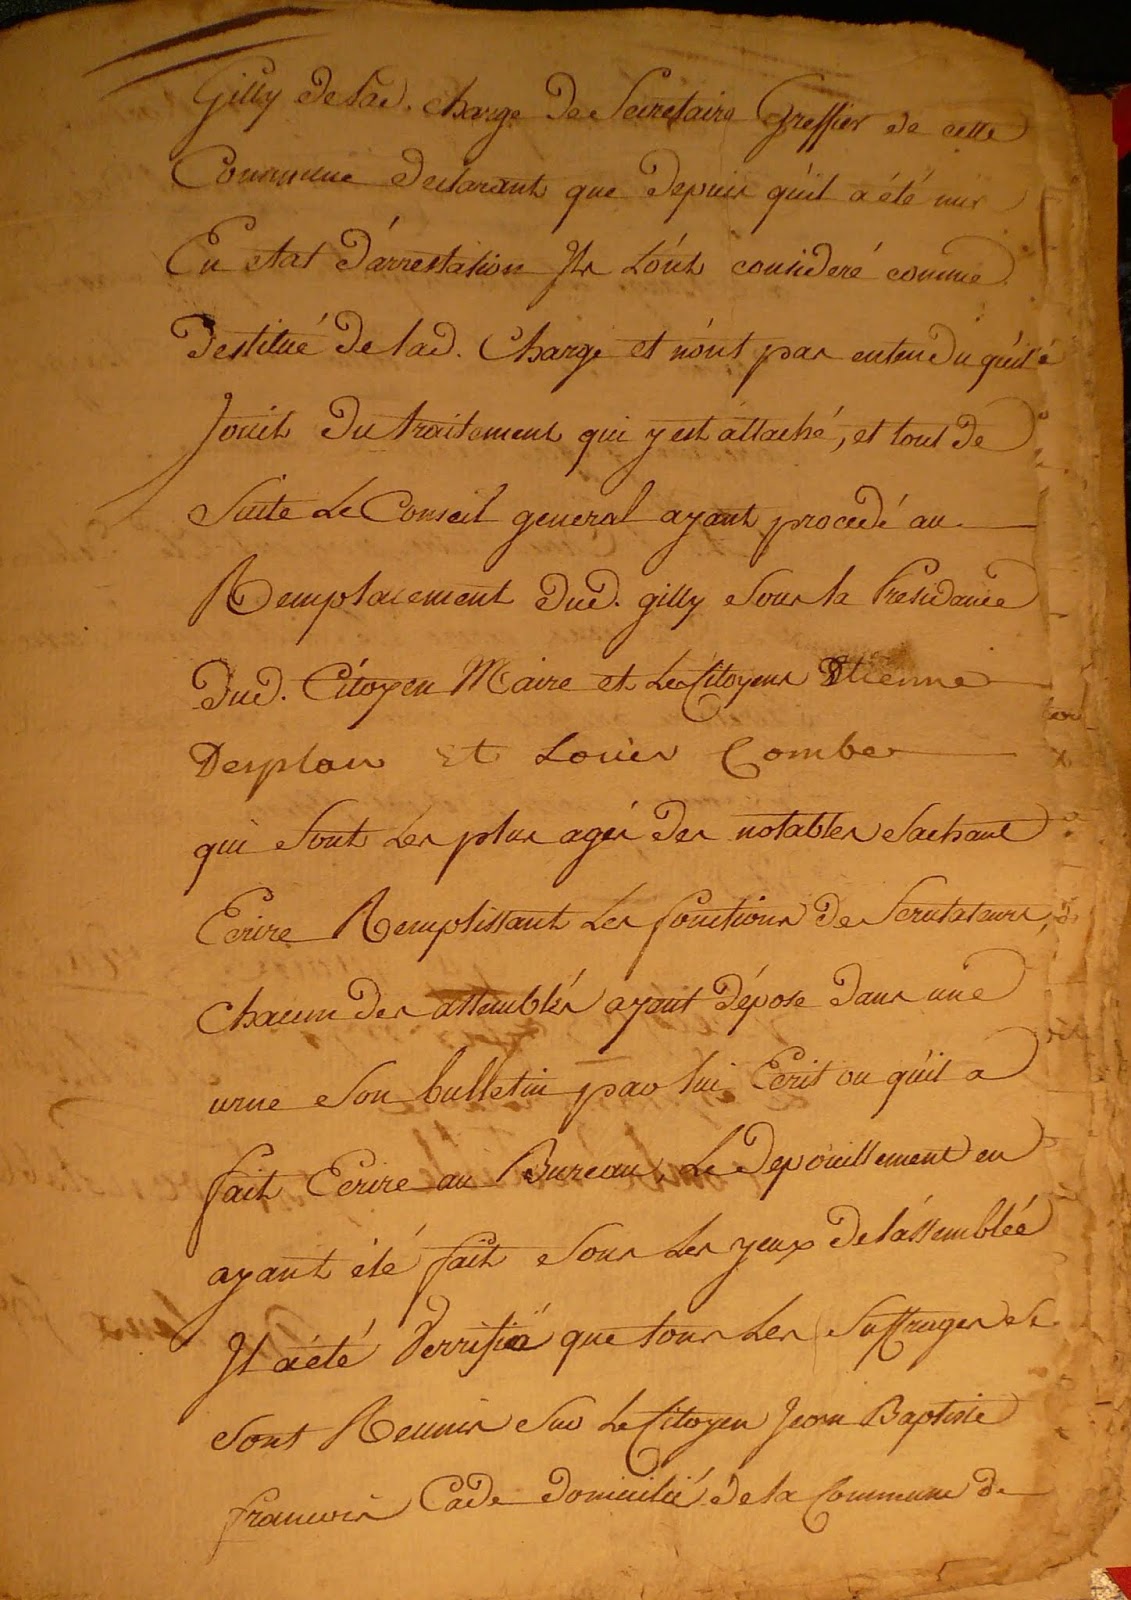 Gilly de lad. charge de Secretaire Greffier de cette
Commune declarant que depuis qu'il a été mis
En etat d'arrestation Ils L'ont consideré comme
destitué de lad. Charge et n'ont pas entendu qu'il
Jouit du traitement qui y est attaché, et tout de
Suite Le Conseil general ayant procedé au
Remplacement dud. gilly sous la Presidance
Dud. Citoyen Maire et Les Citoyens Etienne
Desplan et Louis Combe
qui sont Les plus agés des notables sachant
Ecrire Remplissant Les fonctions de Scrutateurs,
chacun des assemblés ayant déposé dans une
urne son bulletin par lui Ecrit ou qu'il a
fait Ecrire au Bureau, Le Depouillement en
ayant été fait sous Les yeux de l'assemblée
Il a été Verrifié que tous Les Suffrages se
sont Reunis sur Le Citoyen Jean Baptiste
francois Cade domicilié de la Commune de